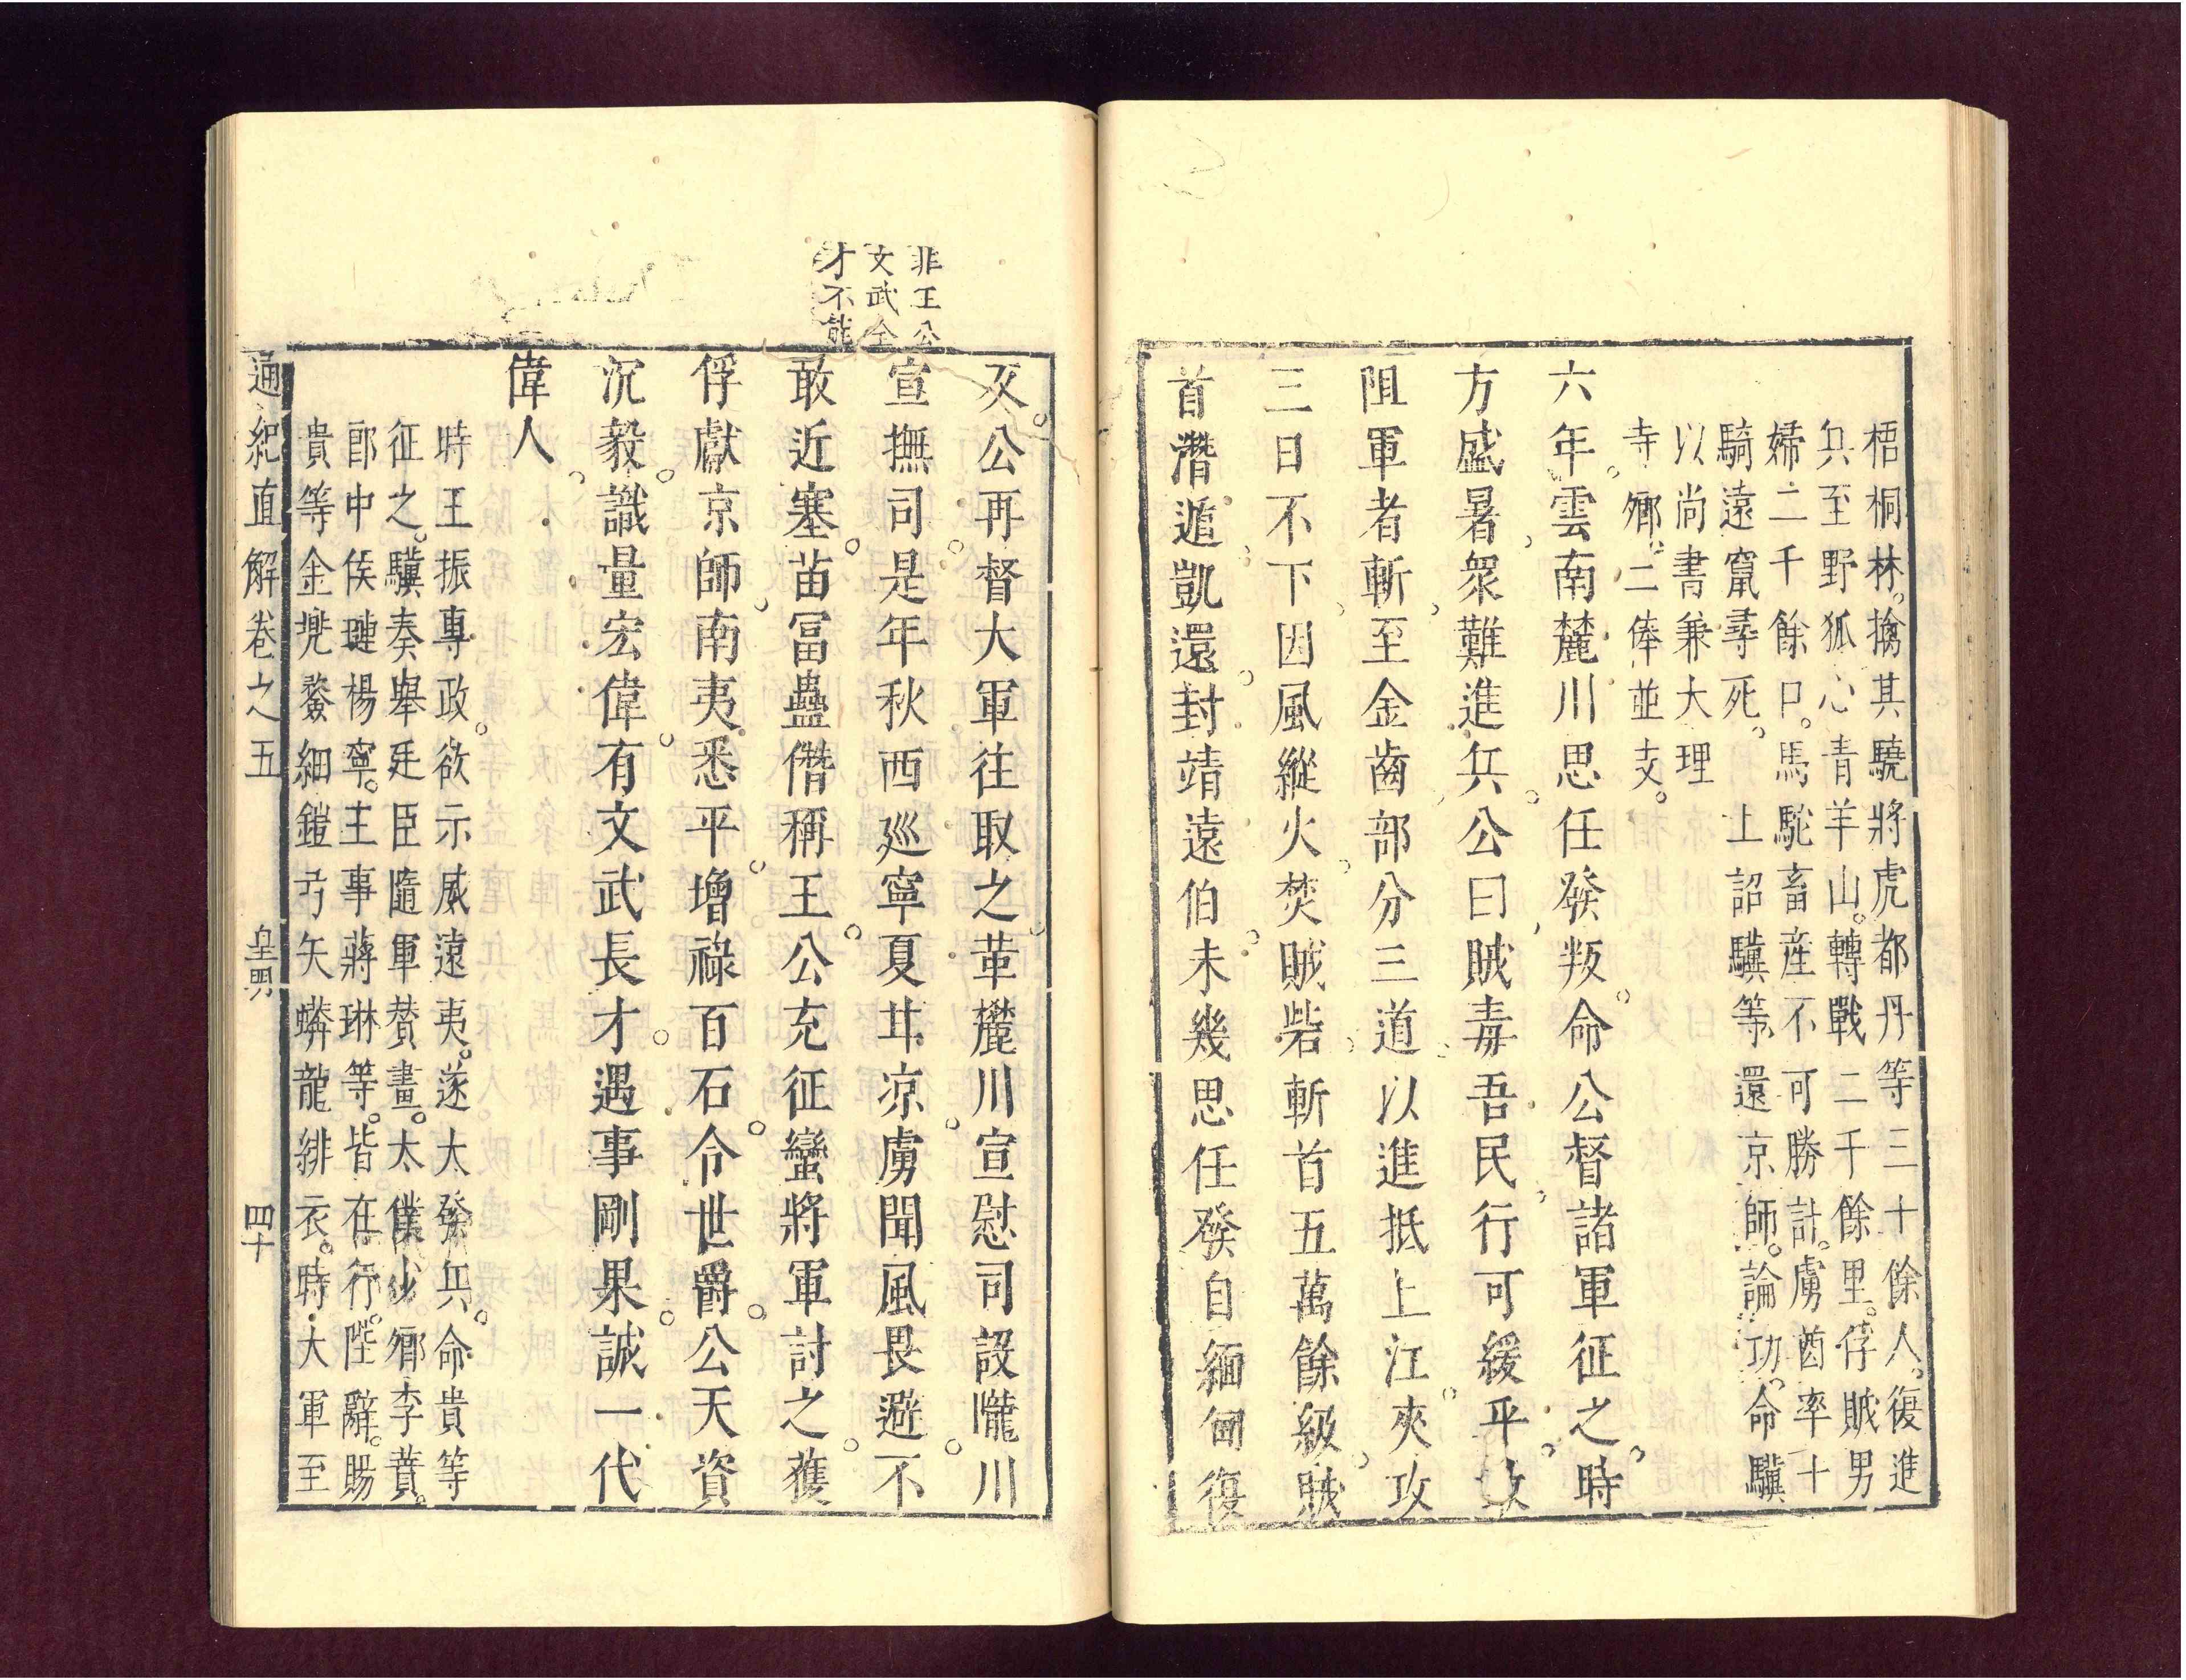 梧桐林。擒其驍將虎都丹等三十餘人。復進
兵至野狐心青羊山。轉戰二千餘里。俘賊男
婦二千餘口。馬駝畜產不可勝計。虜酋率十
騎遠竄尋死。上詔驥等還京師。論功。命驥
以尚書兼大理
寺卿。二俸並支。
六年。雲南麓川思任發叛。命公督諸軍征之。時
方盛暑。眾難進兵。公曰。賊毒吾民。行可緩乎。敢
阻軍者斬。至金齒。部分三道以進。抵上江。夾攻
三日不下。因風縱火。焚賊砦。斬首五萬餘級。賊
首潛遁。凱還。封靖遠伯。未幾思任發自緬甸復
叉。公再督大軍往取之。革麓川宣慰司。設隴川
宣撫司。是年秋。西巡寧夏甘凉。虜聞風畏避。不
敢近塞。苗冨蠱僭稱王。公充征蠻將軍討之。獲
俘獻京師。南夷悉平。增祿百石。令世爵。公天資
沉毅。識量宏偉。有文武長才。遇事剛果。誠一代
偉人。
時王振專政。欲示威遠夷。遂大發兵。命貴等
征之。驥奏舉廷臣隨軍贊畫。太僕少卿李蕡。
郎中侯璡楊寧。主事蔣琳等。皆在行。陛辭。賜
貴等金兠鍪細鎧弓矢蟒龍緋衣。時大軍至
通紀直解卷之五
皇明
四十
非王公
文武全
才不能